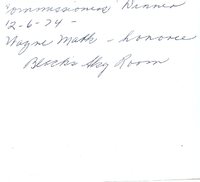 Commissioners Dinner
12-6-74 -
Wayne Math - honoree
Black's Sky Room